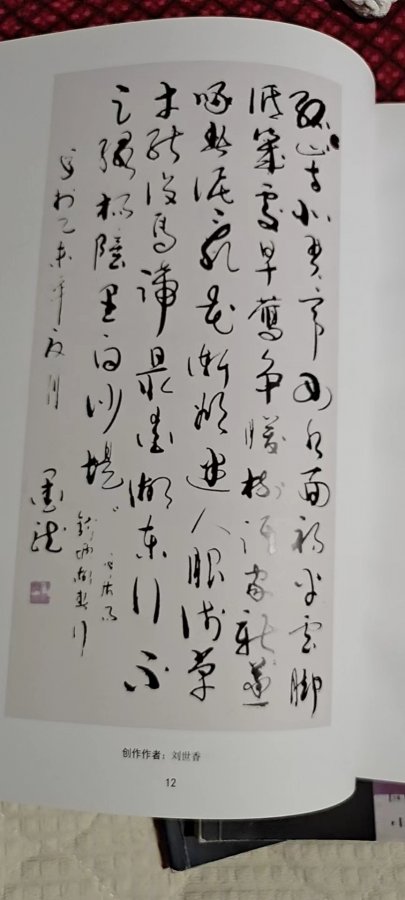 孤山寺北贾亭西水面初平云脚
低幾處早鶯争暖樹谁家新燕
啄春泥乱花渐欲迷人眼浅草
才能没馬蹄最愛湖东行不
足绿杨陰里白沙堤
白居易
钱塘湖春行
于乙未年夏月
墨龙
创作作者：刘世香
12